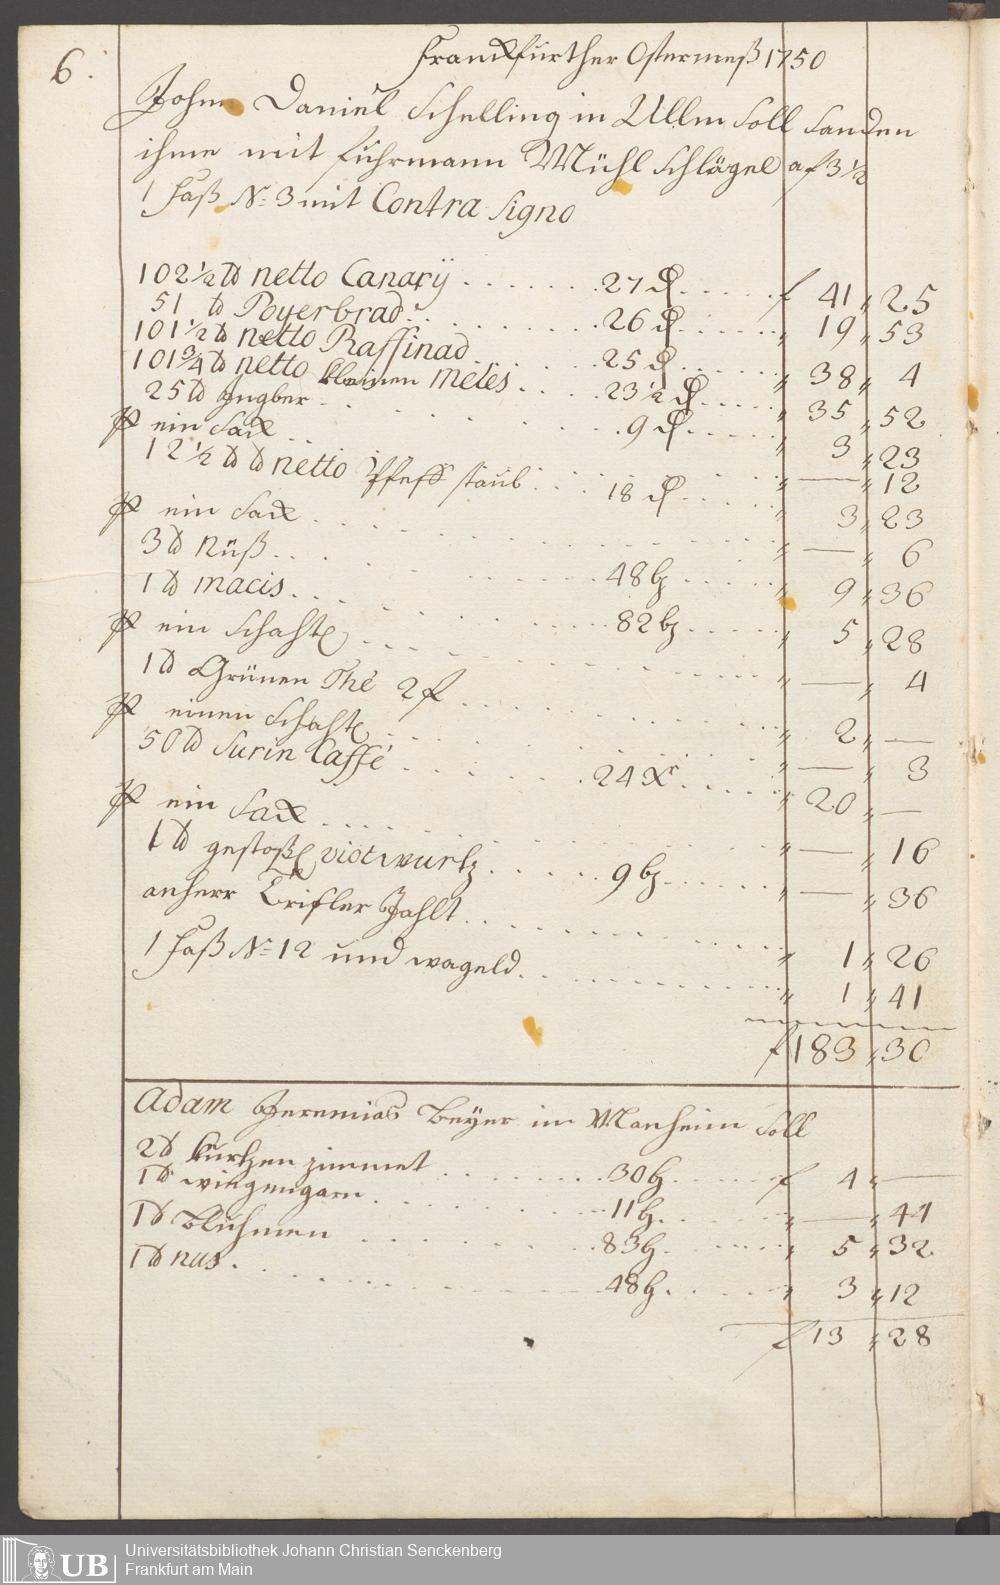 6.
Franckfurther Ostermeß 1750
Johann Daniel Schelling in Ullm soll sanden
ihme mit fuhrmann Mühlschlögel af 3 1/2
1 Faß No: 3 mit Contra Signo
102 1/2 ℔ netto Canarÿ . . . . . . . 27 ₰ . . . . . f 41 " 25
51 ℔ Poyerbrad . . . . . . . . . 26 ₰ . . . . . " 19 " 53
101 1/2 ℔ netto Raffinad . . . . . . 25 ₰ . . . . . " 38 " 4
101 3/4 ℔ netto kleinen Melis . . . . 23 1/2 ₰ . . . . . " 35 " 52
25 ℔ Ingber . . . . . . . . . . 9 ₰ . . . . . " 3 " 23
ein Sack . . . . . . . . . . " — " 12
12 1/2 ℔ netto Pfeff staub . . . . 18 ₰ . . . . " 3 " 23
ein Sack . . . . . . . . . . " — " 6
3 ℔ Nüß . . . . . . . . . 48 bz . . . . . " 9 " 36
1 ℔ macis . . . . . . . . . 82 bz . . . . . " 5 " 28
ein Schachtel . . . . . . . . . . " — " 4
1 ℔ Grünen Thé 2 f . . . . . . . . . . " 2 " —
einen Schachtel . . . . . . . . . . " — " 3
50 ℔ Surin Caffé . . . . . . . 24 xr . . . . . " 20 " —
ein Sack . . . . . . . . . . " — " 16
1 ℔ gestoßen violwurtz . . . . . . 9 bz . . . . . " — " 36
anherr Trifler Zahlt . . . . . . . . . . " 1 " 26
1 Faß No: 12 und wageld . . . . . . . . . . " 1 " 41
f 183 " 30
Adam Jeremias Beÿer in Manheim soll
2 ℔ kurtzen zimmet . . . . . . 30 bz . . . . . f 4 " —
1 ℔ . . . . . . 11 bz . . . . . " — " 44
1 ℔ Bluhmen . . . . . . 83 bz . . . . . " 5 " 32
1 ℔ nus . . . . . . 48 bz . . . . . " 3 " 12
f 13 " 28
UB
Universitätsbibliothek Johann Christian Senckenberg
Frankfurt am Main